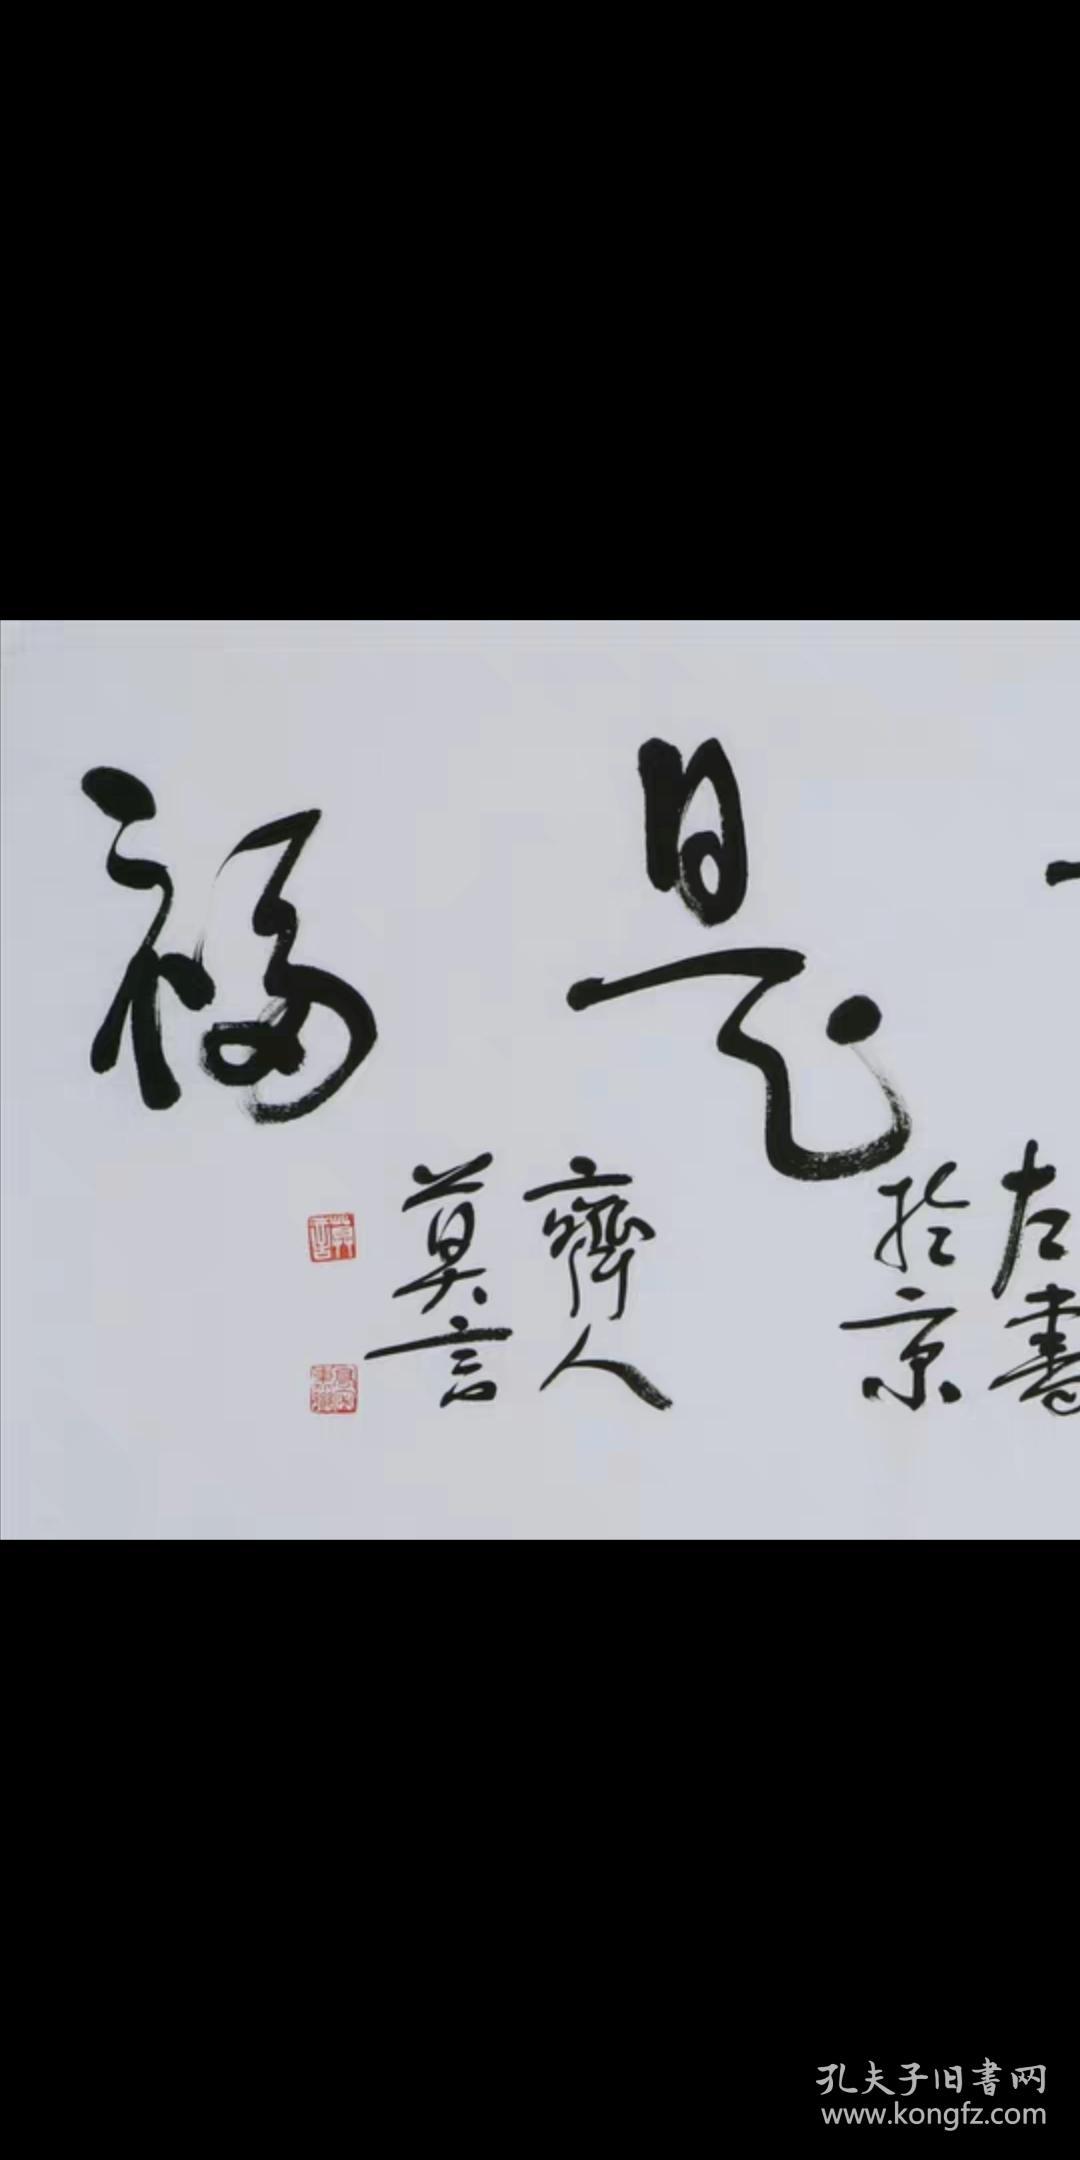 是福
左書
於京
齊人
莫言
莫言
孔夫子旧书网
www.kongfz.com